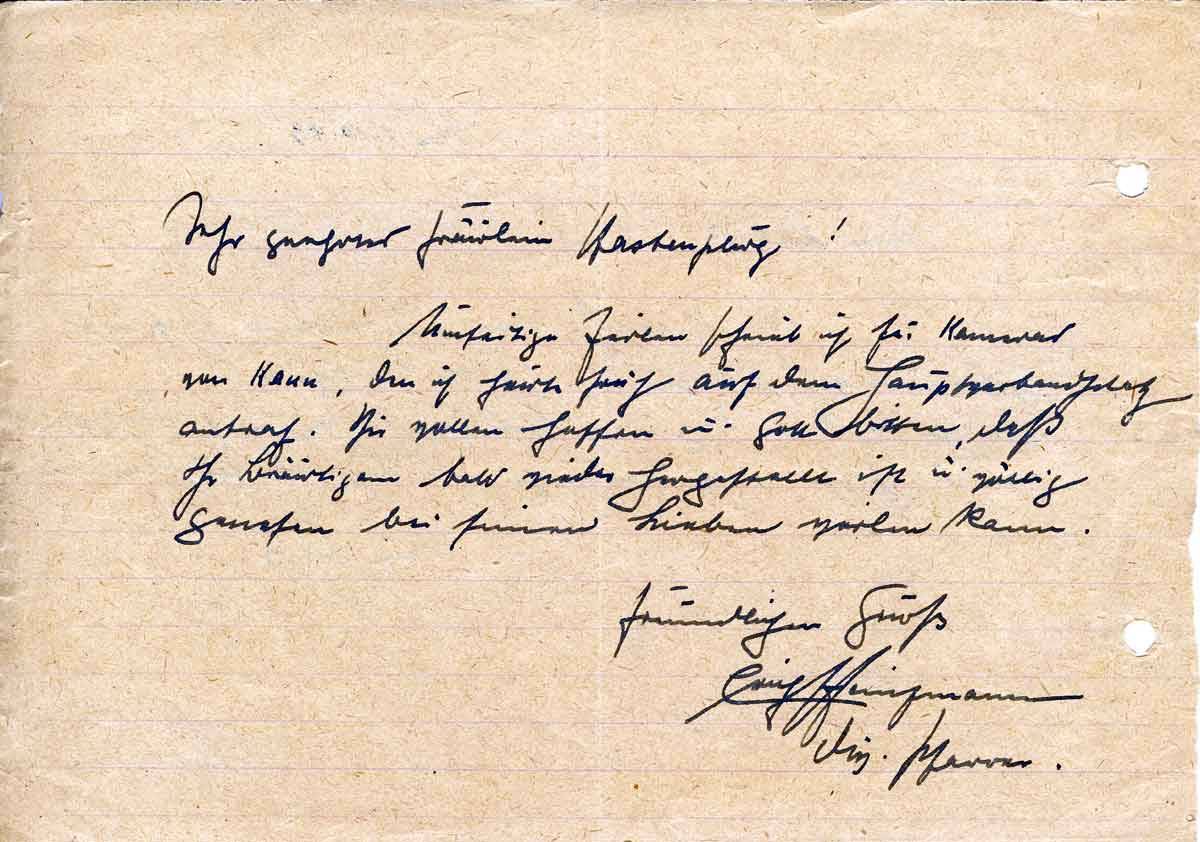 Sehr geehrtes Fräulein Hastenpflug!
Umseitige Zeilen schrieb ich für Kamerad
von Kann, den ich heute früh auf dem Hauptverbandsplatz
antraf. Wir wollen hoffen u. Gott bitten, daß
Ihr Bräutigam bald wieder hergestellt ist u. völlig
genesen bei seinen Lieben weilen kann.
Freundlichen Gruß
Erich
Div. Pfarrer.